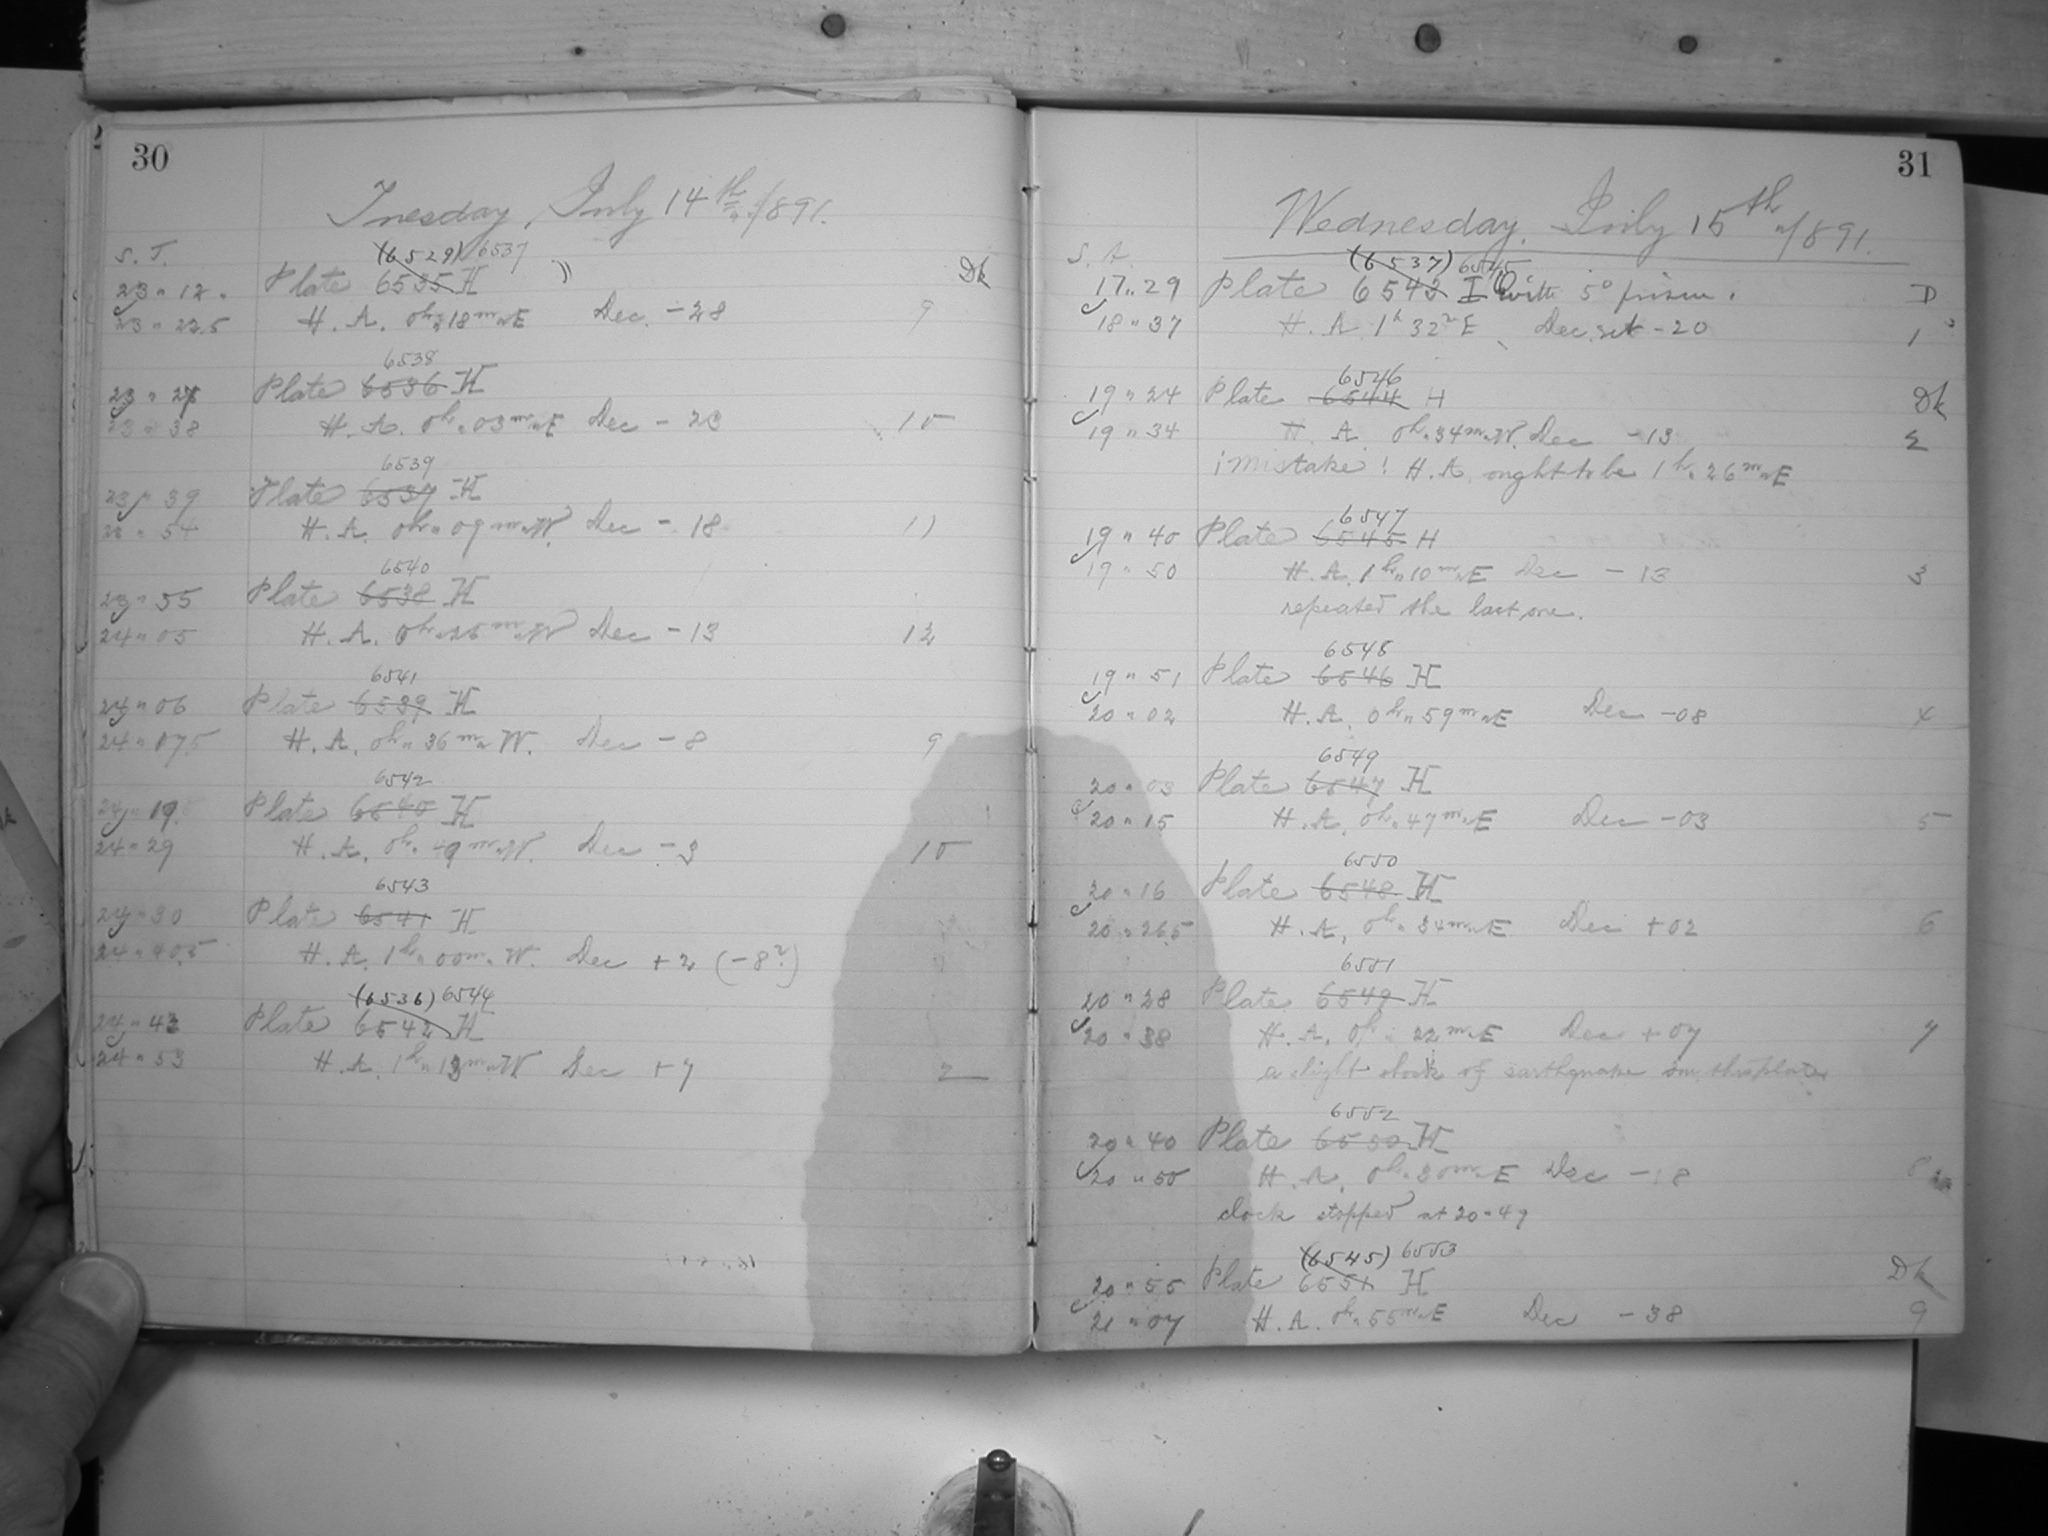 30
Tuesday, July 14th 1891.
S. T.
(6529) 6537
23 " 12 Plate 6535 H Dk
23 " 22.5 H. A. 0h " 18m " E Dec. - 28 9
6538
23 " 28 Plate 6536 H
23 " 38 H. A. 0h " 03m " E Dec - 23 10
6539
23 " 39 Plate 6537 H
23 " 54 H. A. 0h " 09m " W. Dec - 18 11
6540
23 " 55 Plate 6538 H
24 " 05 H. A. 0h " 25m " W Dec - 13 12
6541
24 " 06 Plate 6539 H
24 " 17.5 H. A. 0h " 36m " W. Dec - 8 9
6542
24 " 19 Plate 6540 H
24 " 29 H. A. 0h " 49m " W. Dec - 3 10
6543
24 " 30 Plate 6541 H
24 " 40.5 H. A. 1h " 00m " W. Dec + 2 (-8?)
(6536) 6544
24 " 43 Plate 6542 H
24 " 53 H. A. 1h " 13m " W Dec + 7 2
31
Wednesday, July 15th 1891.
(6537) 6545
17 " 29 Plate 6543 I with 5° prism. D
18 " 37 H. A 1h 32m E Dec. set - 20 1
6546
19 " 24 Plate 6544 H Dk
19 " 34 H. A 0h " 34m " W. Dec - 13 2
¡mistake! H. A. ought to be 1h " 26m " E
6547
19 " 40 Plate 6545 H
19 " 50 H. A. 1h " 10m " E Dec - 13 3
repeated the last one.
6548
19 " 51 Plate 6546 H
20 " 02 H. A. 0h " 59m " E Dec - 08 4
6549
20 " 03 Plate 6547 H
20 " 15 H. A. 0h " 47m " E Dec - 03 5
6550
20 " 16 Plate 6548 H
20 " 26.5 H. A. 0h " 34m " E Dec + 02 6
6551
20 " 28 Plate 6549 H
20 " 38 H. A. 0h " 22m " E Dec + 07 7
a slight shock of earthquake on this plate
6552
20 " 40 Plate 6550 H
20 " 50 H. A. 0h " 30m " E Dec - 18 8
clock stopped at 20 " 49
(6545) 6553
20 " 55 Plate 6551 H Dk
21 " 07 H. A. 0h " 55m " E Dec - 38 9